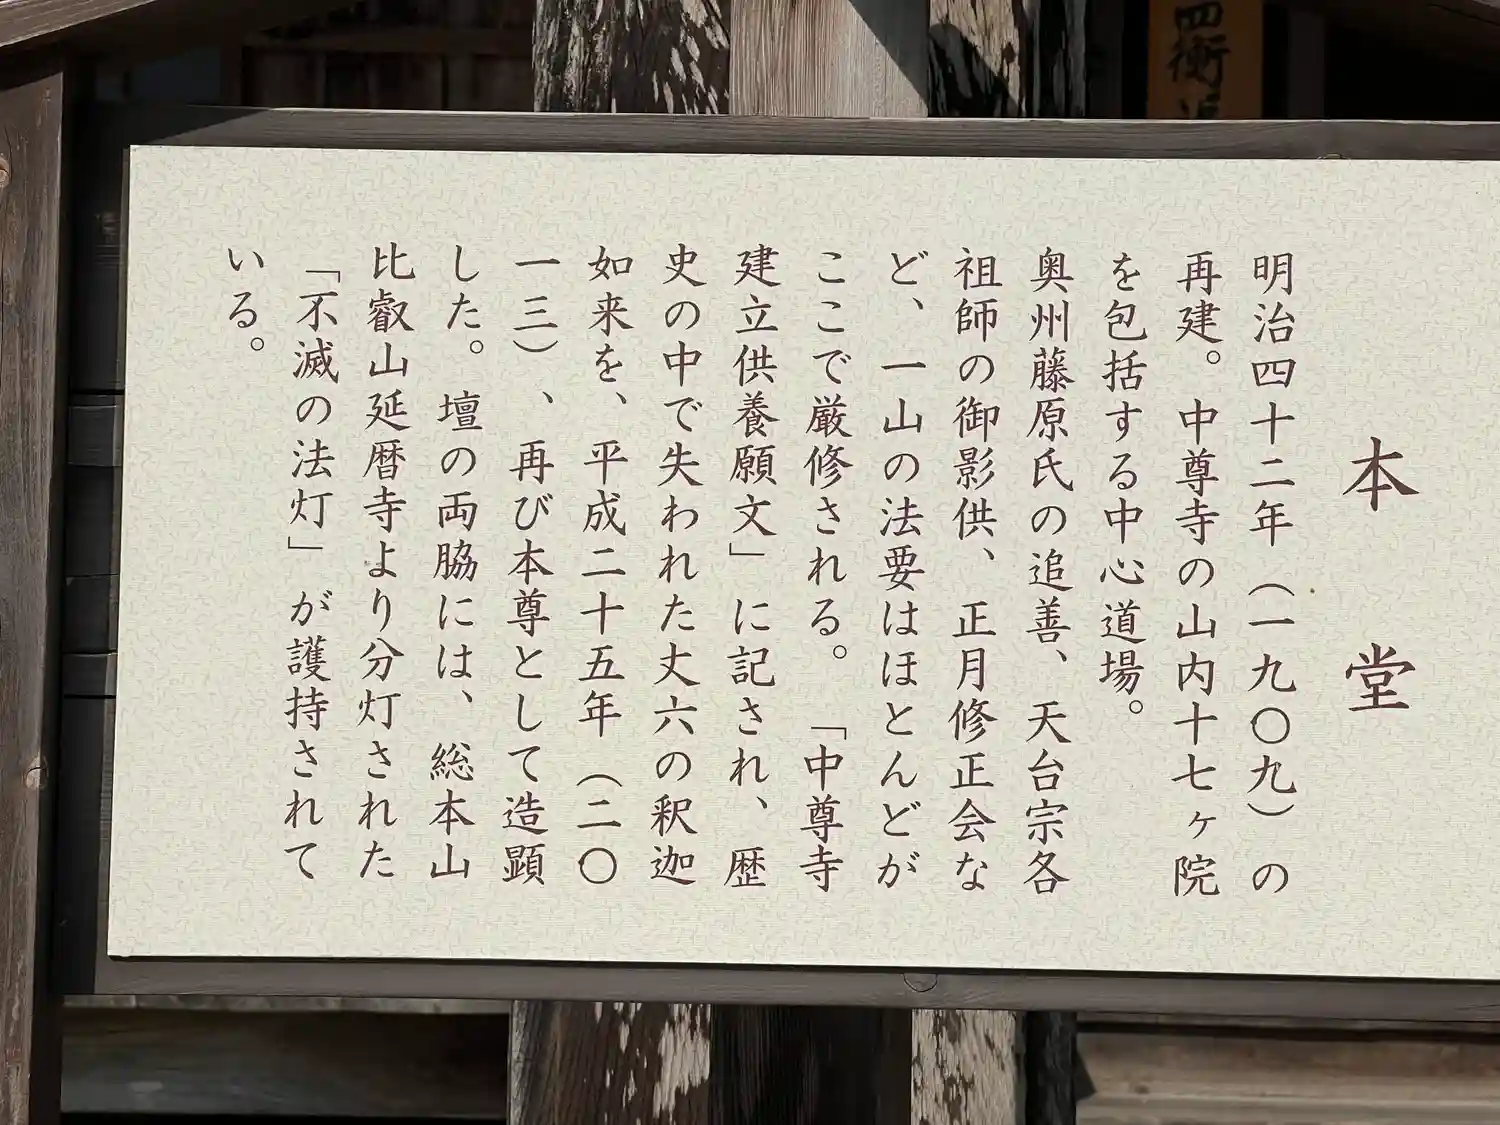 本堂
明治四十二年（一九〇九）の
再建。中尊寺の山内十七ヶ院
を包括する中心道場。
奥州藤原氏の追善、天台宗各
祖師の御影供、正月修正会な
ど、一山の法要はほとんどが
ここで厳修される。「中尊寺
建立供養願文」に記され、歴
史の中で失われた丈六の釈迦
如来を、平成二十五年（二〇
一三）、再び本尊として造顕
した。壇の両脇には、総本山
比叡山延暦寺より分灯された
「不滅の法灯」が護持されて
いる。
四衛